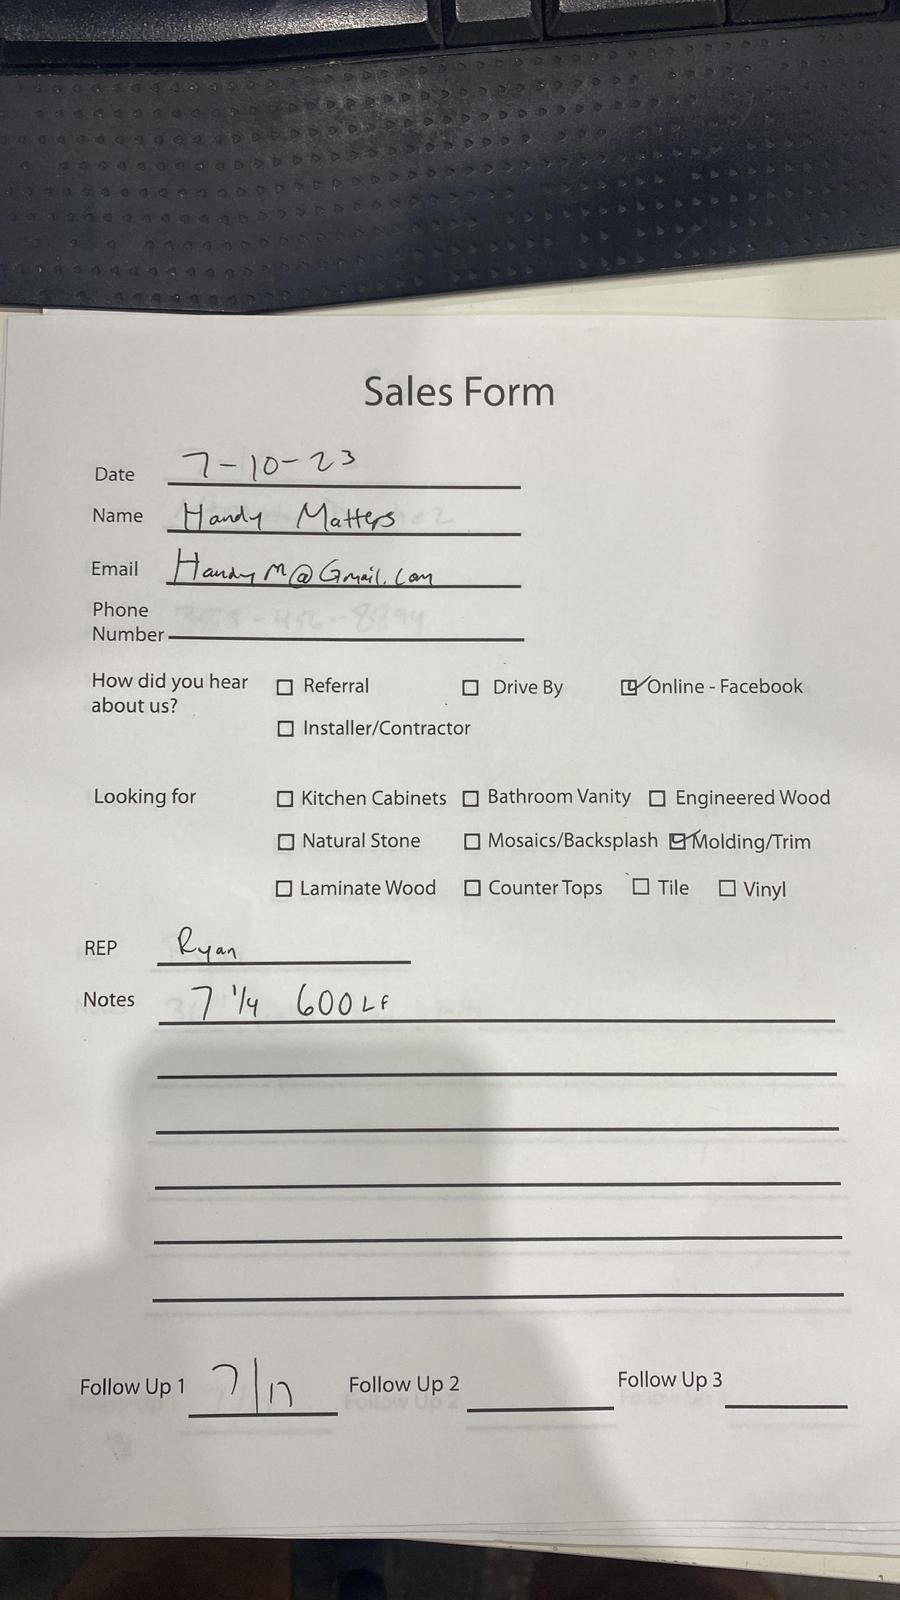 Sales Form
Date 7-10-23
Name Handy Matters
Email HandyM@Gmail.com
Phone
Number
How did you hear about us? ☐ Referral ☐ Drive By ☑ Online - Facebook
☐ Installer/Contractor
Looking for ☐ Kitchen Cabinets ☐ Bathroom Vanity ☐ Engineered Wood
☐ Natural Stone ☐ Mosaics/Backsplash ☑ Molding/Trim
☐ Laminate Wood ☐ Counter Tops ☐ Tile ☐ Vinyl
REP Ryan
Notes 7 1/4 600 LF
Follow Up 1 7/17 Follow Up 2 Follow Up 3